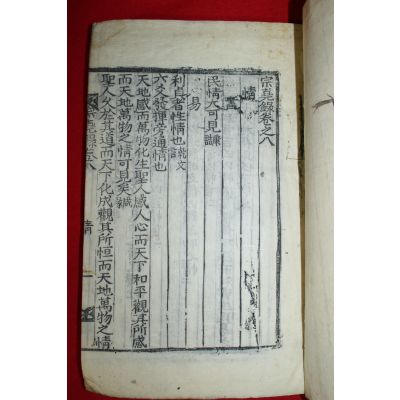 宗堯錄卷之八
情
書
民情大可見康誥
易
利貞者性情也乾文言
六爻發揮旁通情也
天地感而萬物化生聖人感人心而天下和平觀其所感
而天地萬物之情可見矣咸
聖人久於其道而天下化成觀其所恒而天地萬物之情
情